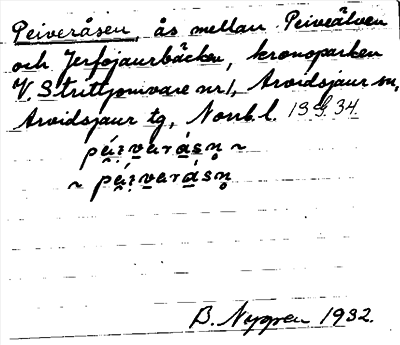 Peiveråsen, ås mellan Peiveälven
och Jerfojaurbäcken, kronoparken
V. Strittjomvare nr 1, Arvidsjaur sn,
Arvidsjaur tg, Norrb. l. 19 34
~
~
B. Nygren 1932.